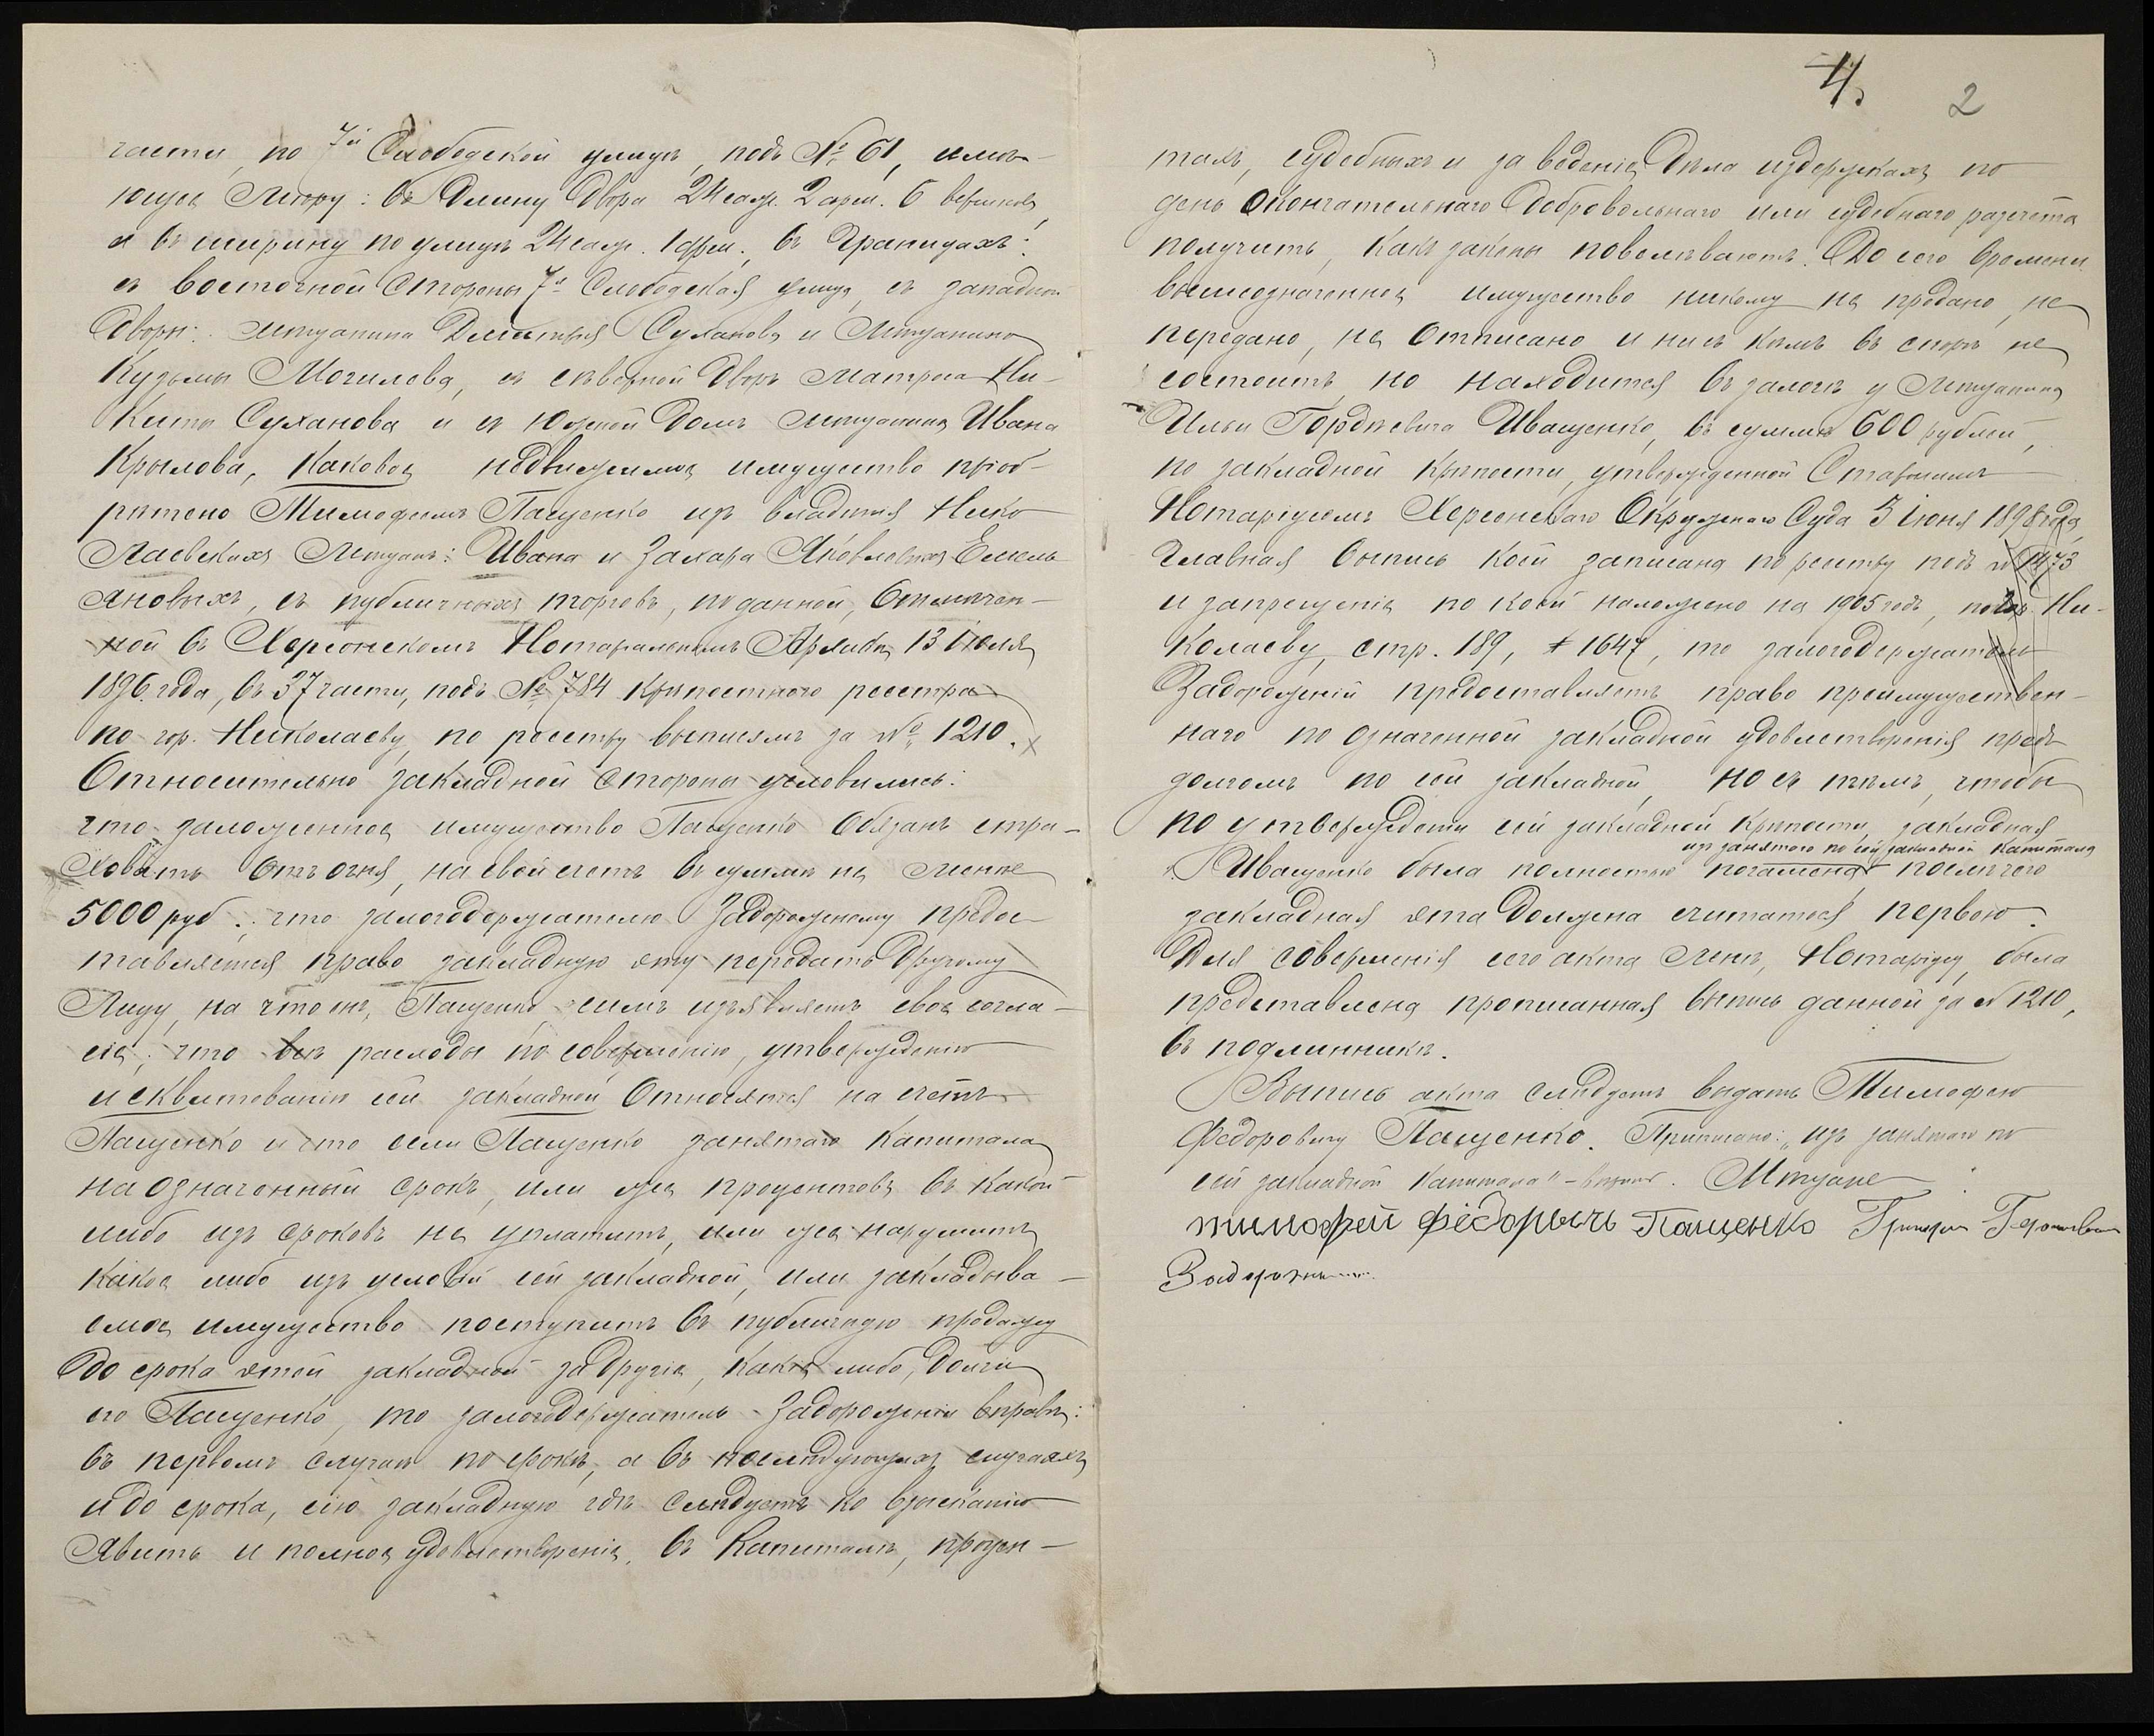 части, по 7й Слободской улицѣ, подъ № 61, имѣ-
ющее мѣру: въ длину двора 24 саж. 2 арш. 6 вершковъ,
а въ ширину по улицѣ 24 саж. 1 арш., въ границахъ:
съ восточной стороны 7я Слободская улица, съ западной
дворы: мѣщанина Дмитрія Суханова и мѣщанина
Кузьмы Могилева, съ сѣверной дворъ матроса Ни-
киты Суханова и съ южной домъ мѣщанина Ивана
Крылова, каковое недвижимое имущество пріоб-
рѣтено Тимофеемъ Пащенко изъ владѣнія Нико-
лаевскихъ мѣщанъ: Ивана и Захара Яковлевыхъ Емель-
яновыхъ, съ публичныхъ торговъ, по данной, отмѣчен-
ной въ Херсонскомъ Нотаріальномъ Архивѣ, 13 Іюля
1896 года, въ 37 части, подъ № 784 крѣпостного реестра
по гор. Николаеву, по реестру выписямъ за № 1210.
Относительно закладной стороны условились:
что заложенное имущество Пащенко обязанъ стра-
ховать отъ огня, на свой счетъ въ суммѣ не менѣе
5000 руб.; что залогодержателю Задорожному предос-
тавляется право закладную эту передать другому
лицу, на что онъ, Пащенко симъ изъявляетъ свое согла-
сіе; что всѣ расходы по совершенію, утвержденію
и сквитованію сей закладной относятся на счетъ
Пащенко и что если Пащенко занятаго капитала
на означенный срокъ, или же процентовъ въ какой
либо изъ сроковъ не уплатитъ, или же нарушитъ
какое либо изъ условій сей закладной, или закладыва-
емое имущество поступитъ въ публичную продажу
до срока этой закладной за другіе, какіе либо, долги
его Пащенко, то залогодержатель Задорожный вправѣ:
въ первомъ случаѣ по срокѣ, а въ послѣдующихъ случаяхъ
и до срока, сію закладную гдѣ слѣдуетъ ко взысканію
явить и полное удовлетвореніе, въ капиталѣ, процен-
4.
2
тахъ, судебныхъ и за веденіе дѣла издержкахъ, по
день окончательнаго добровольнаго или судебнаго разсчета
получить, какъ законы повелѣваютъ. До сего времени
вышеозначенное имущество никому не продано, не
передано, не отписано и ни съ кѣмъ въ спорѣ не
состоитъ, но находится въ залогѣ у мѣщанина
Ильи Гордѣевича Иващенко, въ суммѣ 600 рублей,
по закладной крѣпости, утвержденной Старшимъ
Нотаріусомъ Херсонскаго Окружнаго Суда 3 іюня 1898 года,
главная выпись коей записана по реестру подъ № 1473
и запрещеніе по коей наложено на 1905 годъ, по гор. Ни-
колаеву, стр. 189, № 1647, то залогодержатель
Задорожный предоставляетъ право преимуществен-
наго по означенной закладной удовлетворенія предъ
долгомъ по сей закладной, но съ тѣмъ, чтобы
по утвержденіи сей закладной крѣпости, закладная
изъ занятаго по сей закладной капитала
Иващенко была полностью погашена, послѣ чего
закладная эта должна считаться первою.
Для совершенія сего акта мнѣ, Нотаріусу, была
представлена прописанная выпись данной за № 1210,
въ подлинникѣ.
Выпись акта слѣдуетъ выдать Тимофею
Федоровичу Пащенко. Приписано: „изъ занятаго по
сей закладной капитала" - вѣрно. Мѣщане
тимофей Федорычъ Пащенко